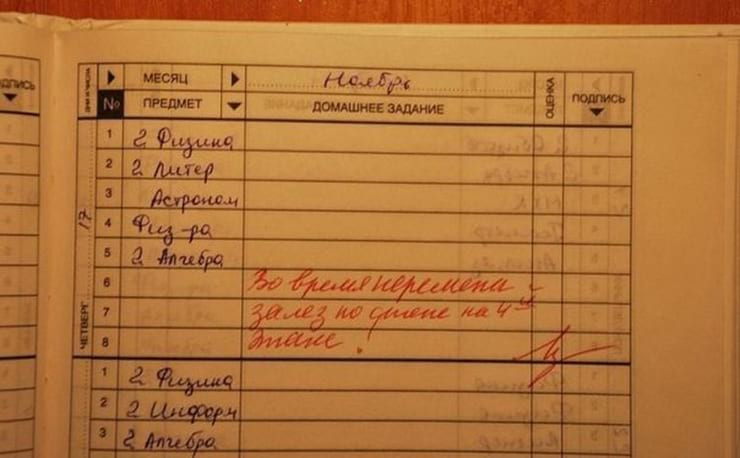 ДНИ И ЧИСЛА МЕСЯЦ Ноябрь ОЦЕНКА ПОДПИСЬ
№ ПРЕДМЕТ ДОМАШНЕЕ ЗАДАНИЕ
ЧЕТВЕРГ 17
1 2 Физика
2 2 Литер
3 Астроном
4 Физ-ра
5 2 Алгебра
6 Во время перемены
7 залез по стене на 4ый
8 этаж!
1 2 Физика
2 2 Информ
3 2 Алгебра